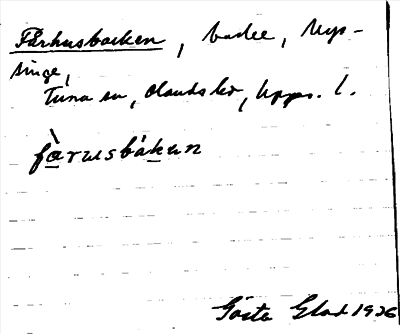 Fårhusbacken, backe, Nyp-
singe,
Tuna sn, Olands hd, Upps. l.
fàrusbákun
Gösta Glad 1926